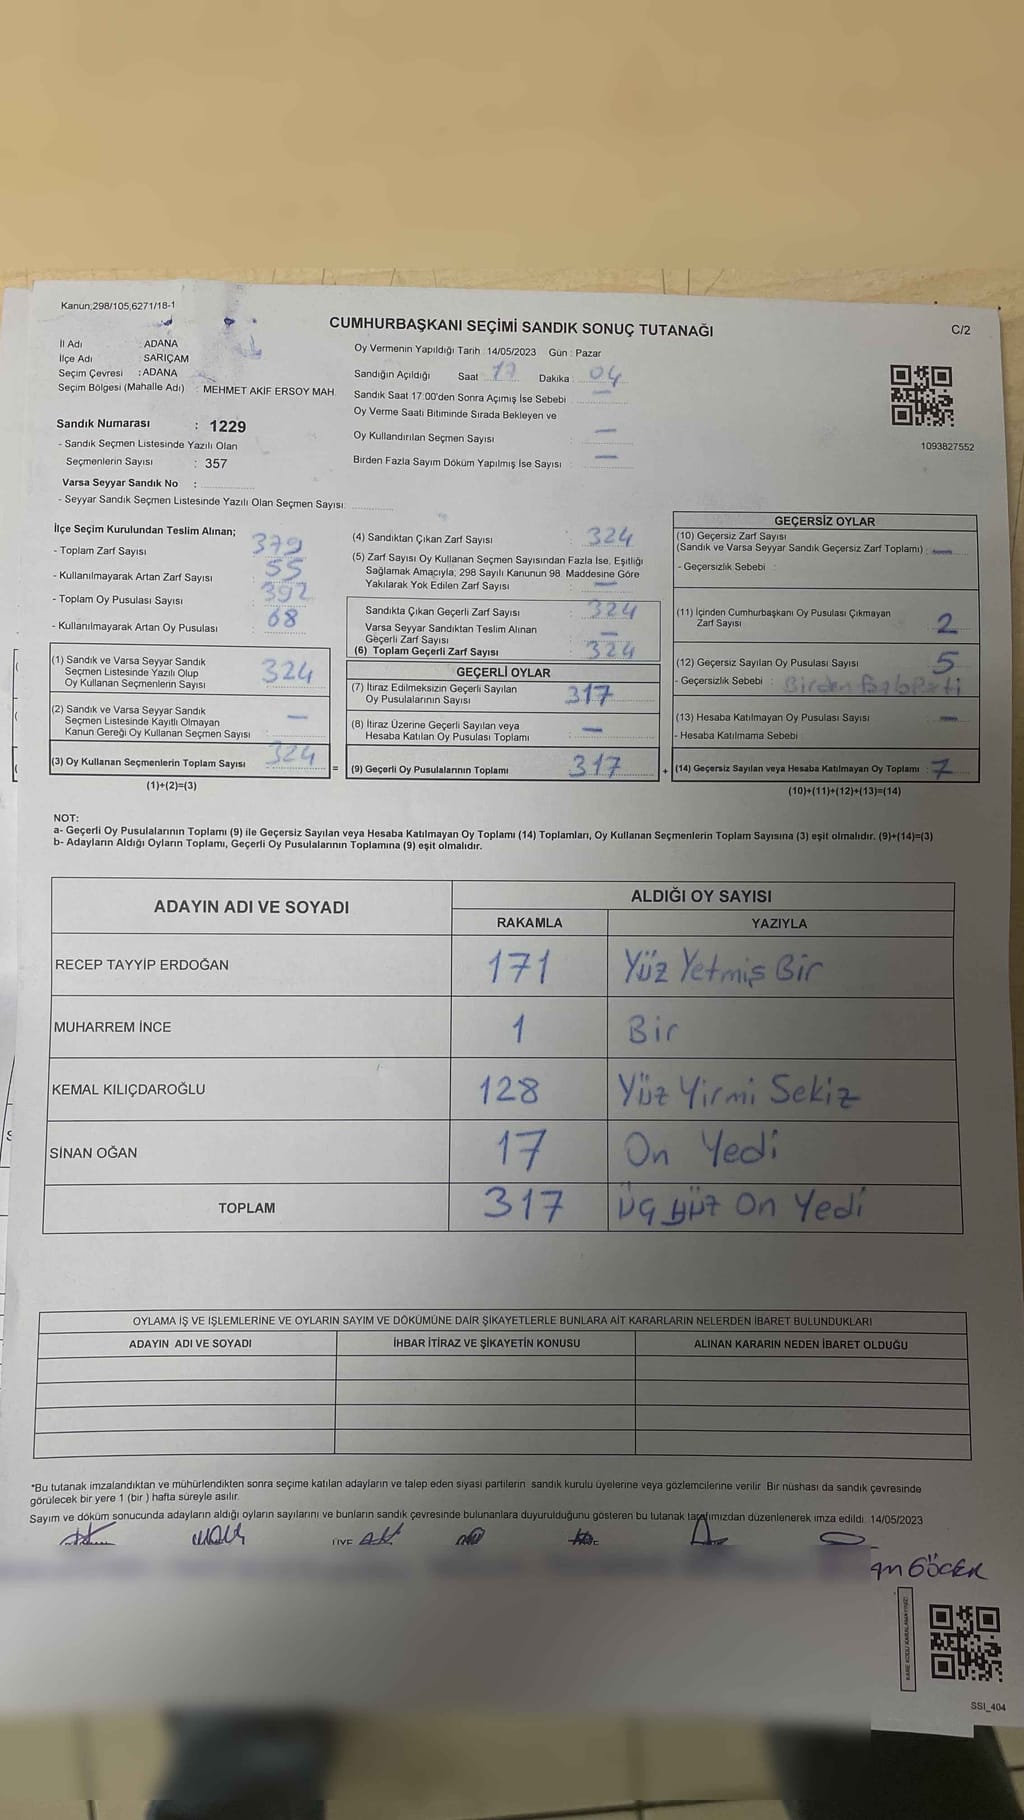 Kanun;298/105,6271/18-1
CUMHURBAŞKANI SEÇİMİ SANDIK SONUÇ TUTANAĞI
C/2
İl Adı : ADANA
İlçe Adı : SARIÇAM
Seçim Çevresi : ADANA
Seçim Bölgesi (Mahalle Adı) : MEHMET AKİF ERSOY MAH.
Sandık Numarası : 1229
- Sandık Seçmen Listesinde Yazılı Olan
Seçmenlerin Sayısı : 357
Varsa Seyyar Sandık No :
- Seyyar Sandık Seçmen Listesinde Yazılı Olan Seçmen Sayısı:
Oy Vermenin Yapıldığı Tarih : 14/05/2023 Gün : Pazar
Sandığın Açıldığı Saat : 17 Dakika : 04
Sandık Saat 17:00'den Sonra Açımış İse Sebebi : —
Oy Verme Saati Bitiminde Sırada Bekleyen ve
Oy Kullandırılan Seçmen Sayısı : —
Birden Fazla Sayım Döküm Yapılmış İse Sayısı : —
1093827552
İlçe Seçim Kurulundan Teslim Alınan;
- Toplam Zarf Sayısı : 379
- Kullanılmayarak Artan Zarf Sayısı : 55
- Toplam Oy Pusulası Sayısı : 392
- Kullanılmayarak Artan Oy Pusulası : 68
(1) Sandık ve Varsa Seyyar Sandık
Seçmen Listesinde Yazılı Olup
Oy Kullanan Seçmenlerin Sayısı : 324
(2) Sandık ve Varsa Seyyar Sandık
Seçmen Listesinde Kayıtlı Olmayan
Kanun Gereği Oy Kullanan Seçmen Sayısı : —
(3) Oy Kullanan Seçmenlerin Toplam Sayısı : 324
(1)+(2)=(3)
(4) Sandıktan Çıkan Zarf Sayısı : 324
(5) Zarf Sayısı Oy Kullanan Seçmen Sayısından Fazla İse, Eşitliği
Sağlamak Amacıyla, 298 Sayılı Kanunun 98. Maddesine Göre
Yakılarak Yok Edilen Zarf Sayısı : —
Sandıkta Çıkan Geçerli Zarf Sayısı : 324
Varsa Seyyar Sandıktan Teslim Alınan
Geçerli Zarf Sayısı : —
(6) Toplam Geçerli Zarf Sayısı : 324
GEÇERLİ OYLAR
(7) İtiraz Edilmeksizin Geçerli Sayılan
Oy Pusulalarının Sayısı : 317
(8) İtiraz Üzerine Geçerli Sayılan veya
Hesaba Katılan Oy Pusulası Toplamı : —
= (9) Geçerli Oy Pusulalarının Toplamı : 317
GEÇERSİZ OYLAR
(10) Geçersiz Zarf Sayısı
(Sandık ve Varsa Seyyar Sandık Geçersiz Zarf Toplamı) : —
- Geçersizlik Sebebi :
(11) İçinden Cumhurbaşkanı Oy Pusulası Çıkmayan
Zarf Sayısı : 2
(12) Geçersiz Sayılan Oy Pusulası Sayısı : 5
- Geçersizlik Sebebi : Birden fazla Parti
(13) Hesaba Katılmayan Oy Pusulası Sayısı : —
- Hesaba Katılmama Sebebi :
+ (14) Geçersiz Sayılan veya Hesaba Katılmayan Oy Toplamı : 7
(10)+(11)+(12)+(13)=(14)
NOT:
a- Geçerli Oy Pusulalarının Toplamı (9) ile Geçersiz Sayılan veya Hesaba Katılmayan Oy Toplamı (14) Toplamları, Oy Kullanan Seçmenlerin Toplam Sayısına (3) eşit olmalıdır. (9)+(14)=(3)
b- Adayların Aldığı Oyların Toplamı, Geçerli Oy Pusulalarının Toplamına (9) eşit olmalıdır.
ADAYIN ADI VE SOYADI
ALDIĞI OY SAYISI
RAKAMLA YAZIYLA
RECEP TAYYİP ERDOĞAN 171 Yüz Yetmiş Bir
MUHARREM İNCE 1 Bir
KEMAL KILIÇDAROĞLU 128 Yüz Yirmi Sekiz
SİNAN OĞAN 17 On Yedi
TOPLAM 317 Üç yüz On Yedi
OYLAMA İŞ VE İŞLEMLERİNE VE OYLARIN SAYIM VE DÖKÜMÜNE DAİR ŞİKAYETLERLE BUNLARA AİT KARARLARIN NELERDEN İBARET BULUNDUKLARI
ADAYIN ADI VE SOYADI İHBAR İTİRAZ VE ŞİKAYETİN KONUSU ALINAN KARARIN NEDEN İBARET OLDUĞU
*Bu tutanak imzalandıktan ve mühürlendikten sonra seçime katılan adayların ve talep eden siyasi partilerin sandık kurulu üyelerine veya gözlemcilerine verilir. Bir nüshası da sandık çevresinde
görülecek bir yere 1 (bir ) hafta süreyle asılır.
Sayım ve döküm sonucunda adayların aldığı oyların sayılarını ve bunların sandık çevresinde bulunanlara duyurulduğunu gösteren bu tutanak tarafımızdan düzenlenerek imza edildi. 14/05/2023
GÖCER
KARE KODU KARALAMAYINIZ!
SSI_404